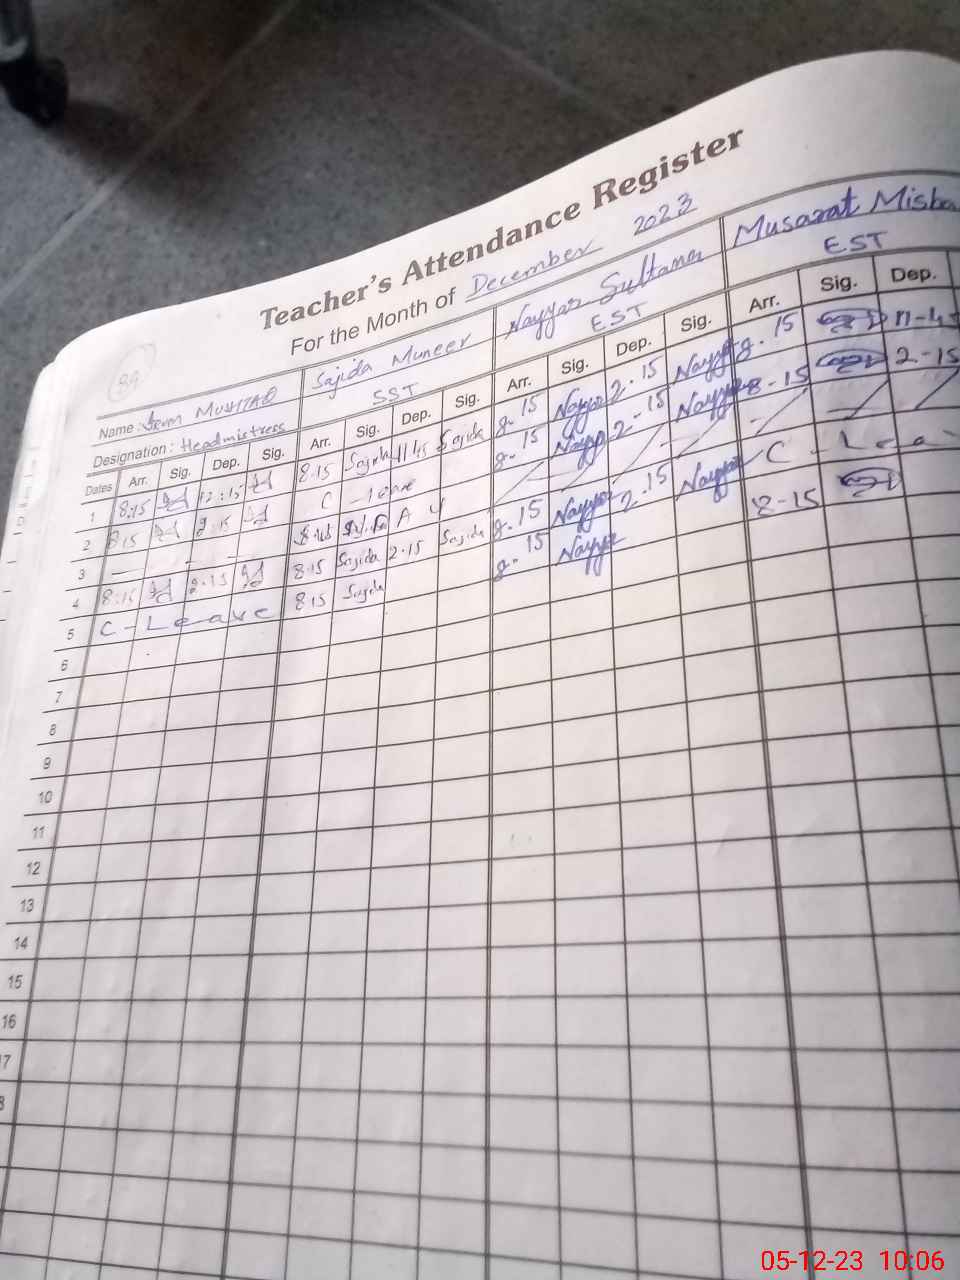 Teacher's Attendance Register
For the Month of December 2023
89
Name : MUSHTAQ Sajida Muneer Nayyar Sultana Musarat Misba
Designation : Headmistress SST EST EST
Dates Arr. Sig. Dep. Sig. Arr. Sig. Dep. Sig. Arr. Sig. Dep. Sig. Arr. Sig. Dep.
1 8:15 12:15 8.15 Sajida 11.45 Sajida 8-15 Nayyar 2-15 Nayyar 8-15
2 8:15 2:15 C - leave 8-15 Nayyar 2-15 Nayyar 8-15 2-15
3
4 8:15 2:15 8.15 Sajida 2.15 Sajida 8-15 Nayyar 2-15 Nayyar C - Lea
5 C - Leave 8.15 Sajida 8-15 Nayyar 8-15
6
7
8
9
10
11
12
13
14
15
16
7
8
05-12-23 10:06